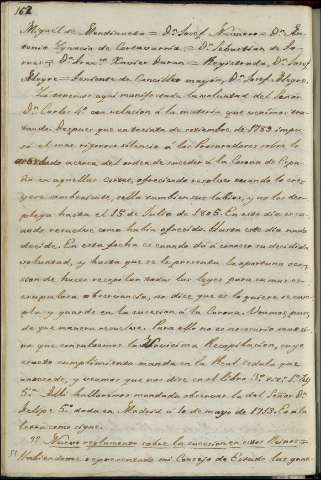 162
Miguel de Mendinueta = Dn. Josef Navarro = Dn. An-
tonio Ignacio de Cortavarria = Dn. Sebastian de
= Dn. Franco. Xavier Duran = Registrada, Dn. Josef
Alegre = Teniente de Canciller mayor, Dn. Josef Alegre.
Ya tenemos aqui manifestada la voluntad del Señor
Dn. Carlos 4º con relacion á la materia que venimos tra-
tando. Despues que en treinta de setiembre de 1789 impu-
so el mas rigoroso silencio á los Procuradores sobre lo
acordado acerca del orden de suceder á la Corona de Espa-
ña en aquellas Cortes, ofreciendo resolver cuando lo cre-
yera conveniente, sella tambien sus labios, y no los des-
plega hasta el 15 de Julio de 1805. En este dia es cu-
ando resuelve como habia ofrecido. Hasta este dia nada
decide. En esta fecha es cuando dá á conocer su decidida
voluntad, y hasta que se le presenta la oportuna oca-
sion de hacer recopilar todas las leyes para su mas es-
crupulosa observancia, no dice que es lo quiere se cum-
pla y guarde en la sucesion á la Corona. Veamos, pues,
de que manera resuelve. Para ello es necesario
que consultemos la Novisima Recopilacion, cuyo
exacto cumplimiento manda en la Real cedula que
antecede, y veamos que nos dice en el libro 3º tit. 1º ley
5ª. Allí hallaremos mandada observar la del Señor Dn.
Felipe 5º dada en Madrid á 10 de mayo de 1713. Es á la
letra como sigue.
"Nuevo reglamento sobre la sucesion en estos Reinos =
"Habiendome representado mi Consejo de Estado las gran-